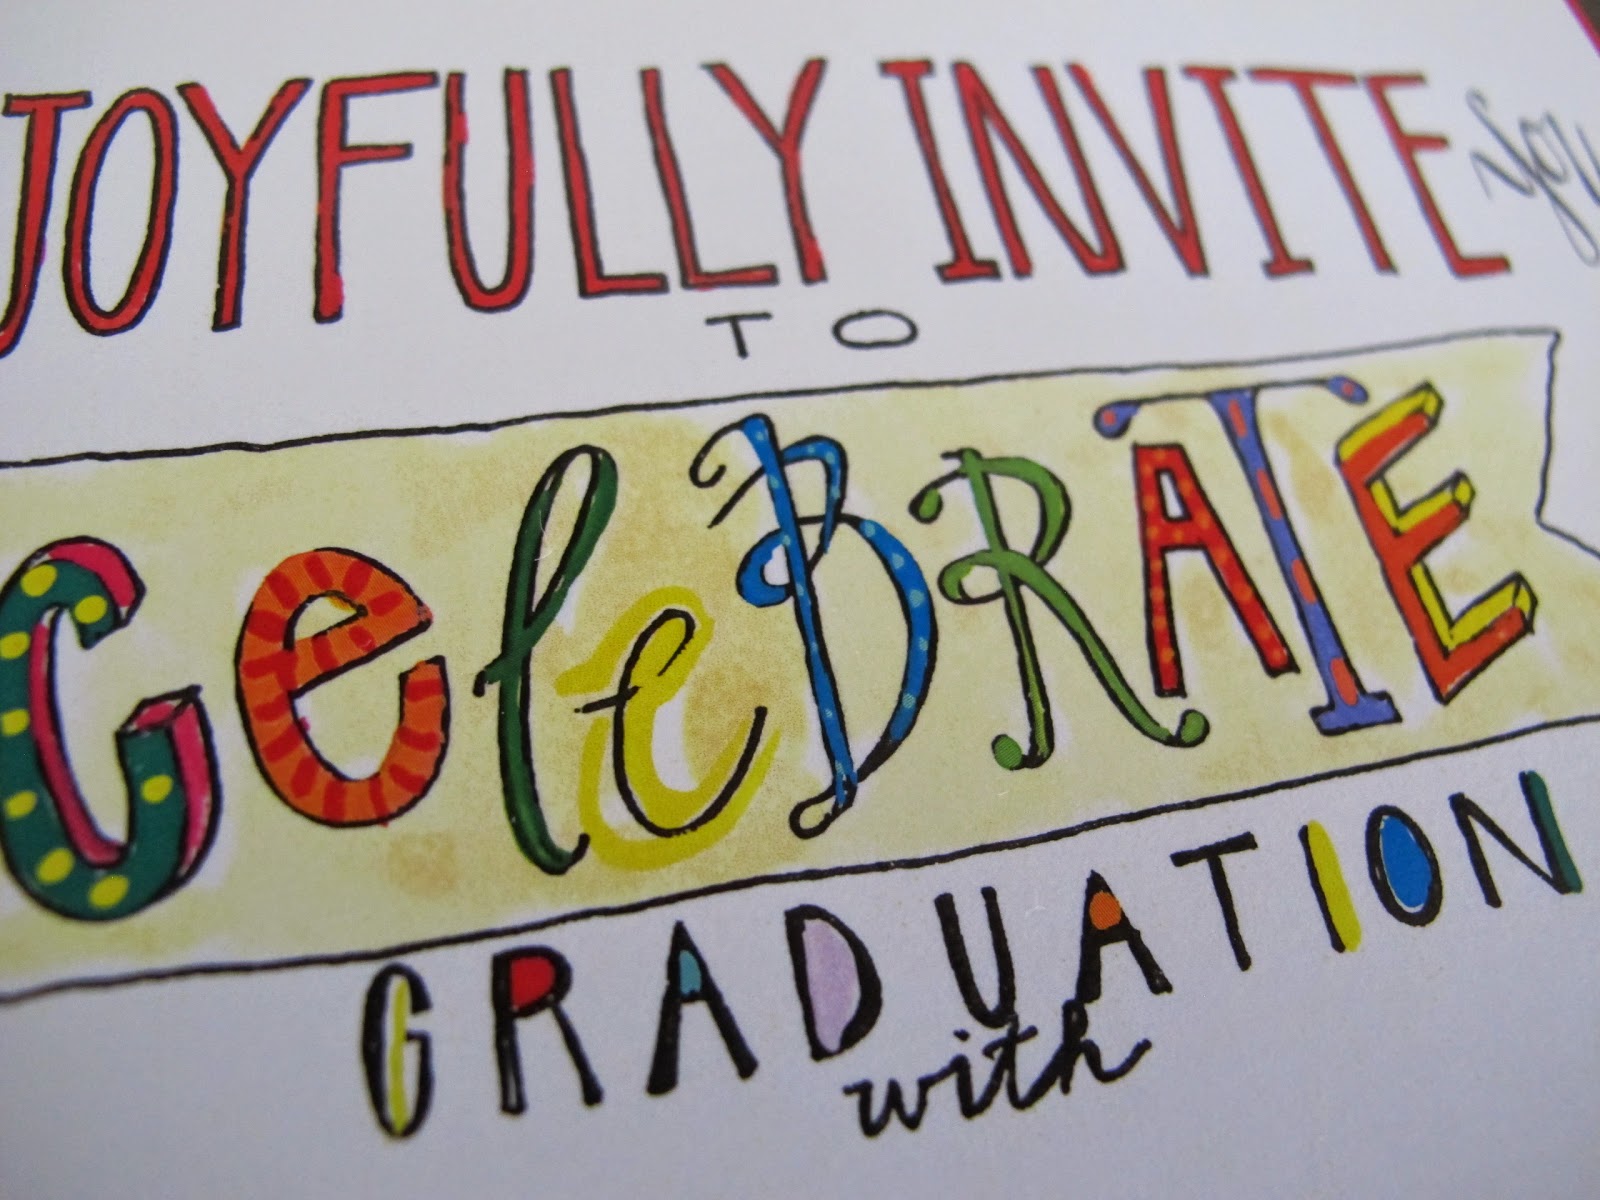 JOYFULLY INVITE you
TO
CeleBRATE
GRADUATION
with